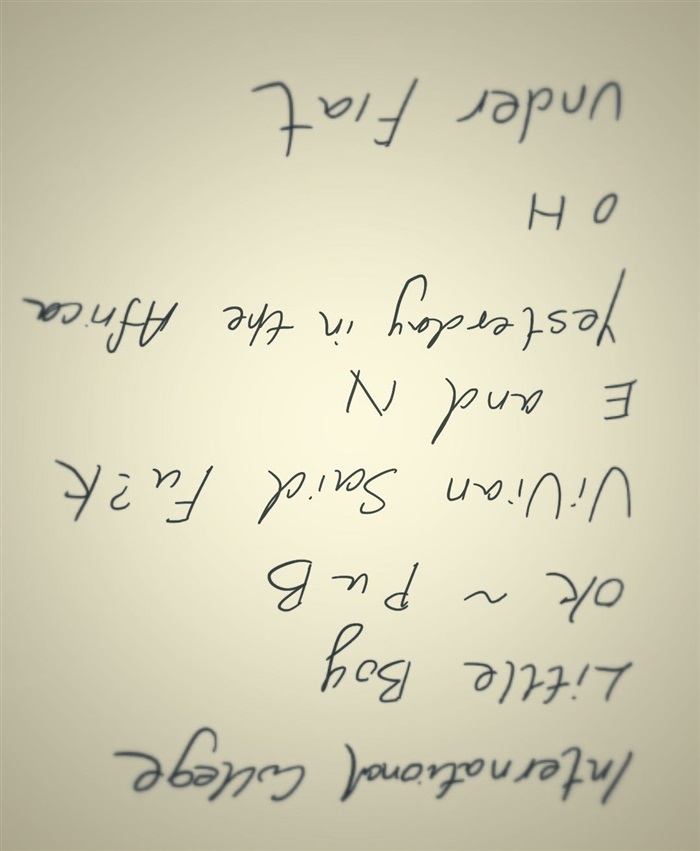 International College
Little Boy
OK ~ PuB
ViVian Said Fu?k
E and N
Yesterday in the Africa
O H
Under Fiat